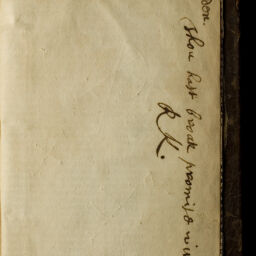 don.
(Thou hast broak promis &
R K.